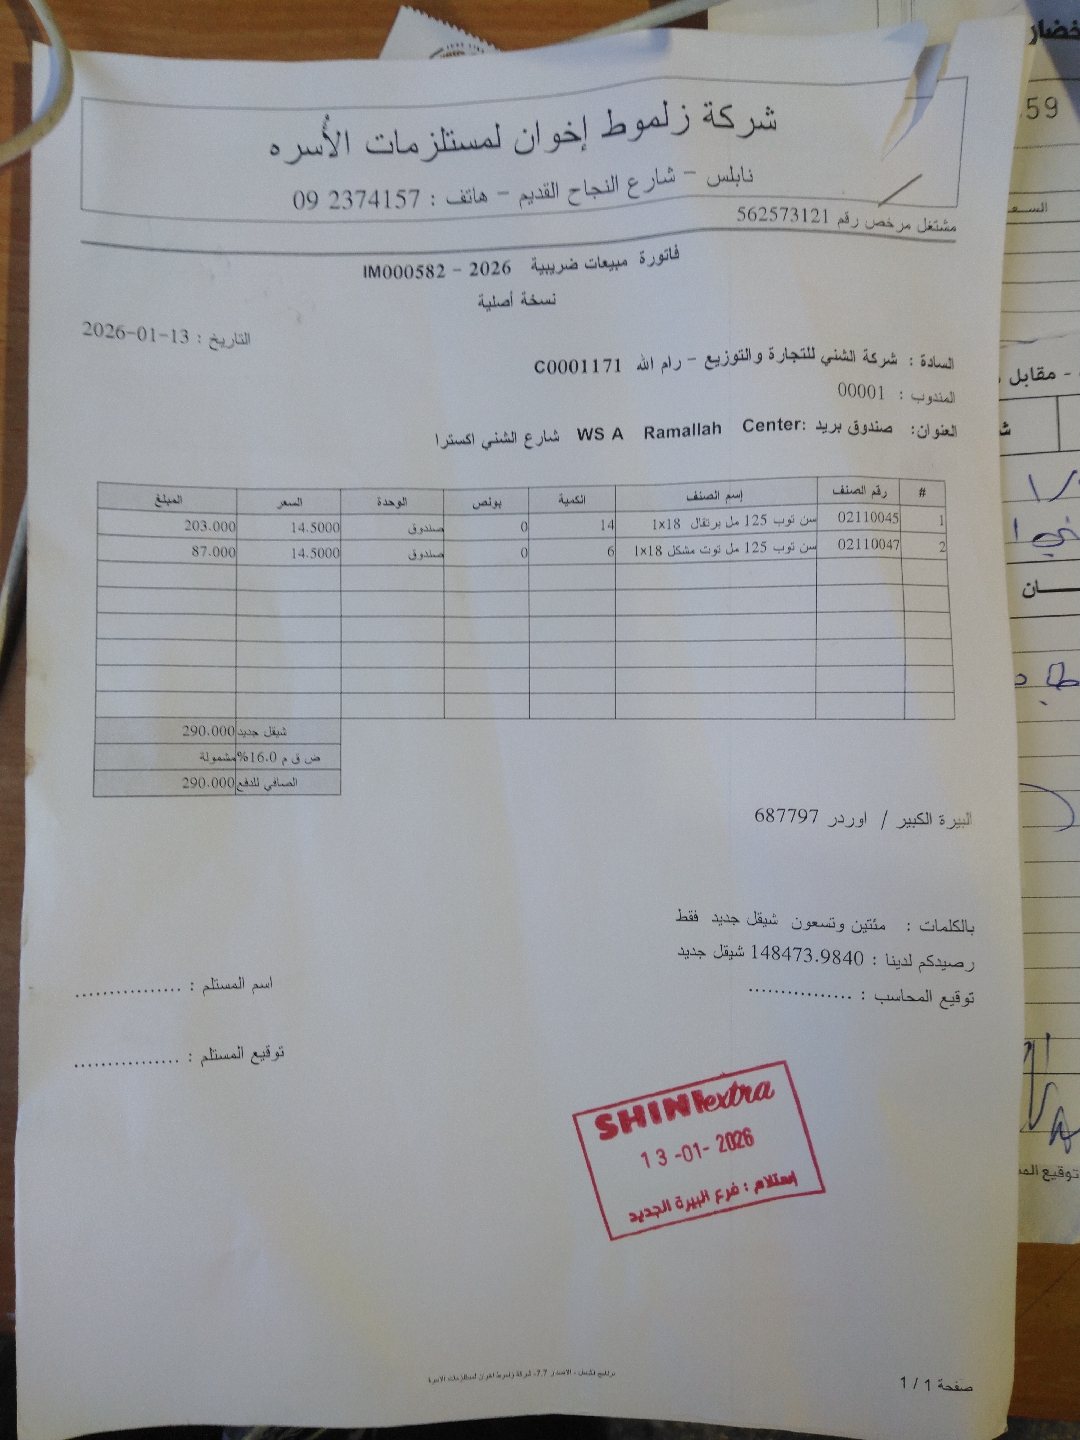 شركة زلموط إخوان لمستلزمات الأسره
نابلس - شارع النجاح القديم - هاتف : 2374157 09
مشتغل مرخص رقم 562573121
فاتورة مبيعات ضريبية 2026 - IM000582
نسخة أصلية
التاريخ : 2026-01-13
السادة : شركة الشني للتجارة والتوزيع - رام الله C0001171
المندوب : 00001
العنوان: صندوق بريد :WS A Ramallah Center شارع الشني اكسترا
# رقم الصنف إسم الصنف الكمية بونص الوحدة السعر المبلغ
1 02110045 سن توب 125 مل برتقال 18×1 14 0 صندوق 14.5000 203.000
2 02110047 سن توب 125 مل توت مشكل 18×1 6 0 صندوق 14.5000 87.000
شيقل جديد 290.000
ض ق م 16.0% مشمولة
الصافي للدفع 290.000
البيرة الكبير / اوردر 687797
بالكلمات : مئتين وتسعون شيقل جديد فقط
رصيدكم لدينا : 148473.9840 شيقل جديد
توقيع المحاسب : ................
اسم المستلم : ................
توقيع المستلم : ................
SHINI extra
13-01-2026
إستلام : فرع البيرة الجديد
صفحة 1 / 1
خضار
59
السعـ
- مقابل
ـــان
توقيع